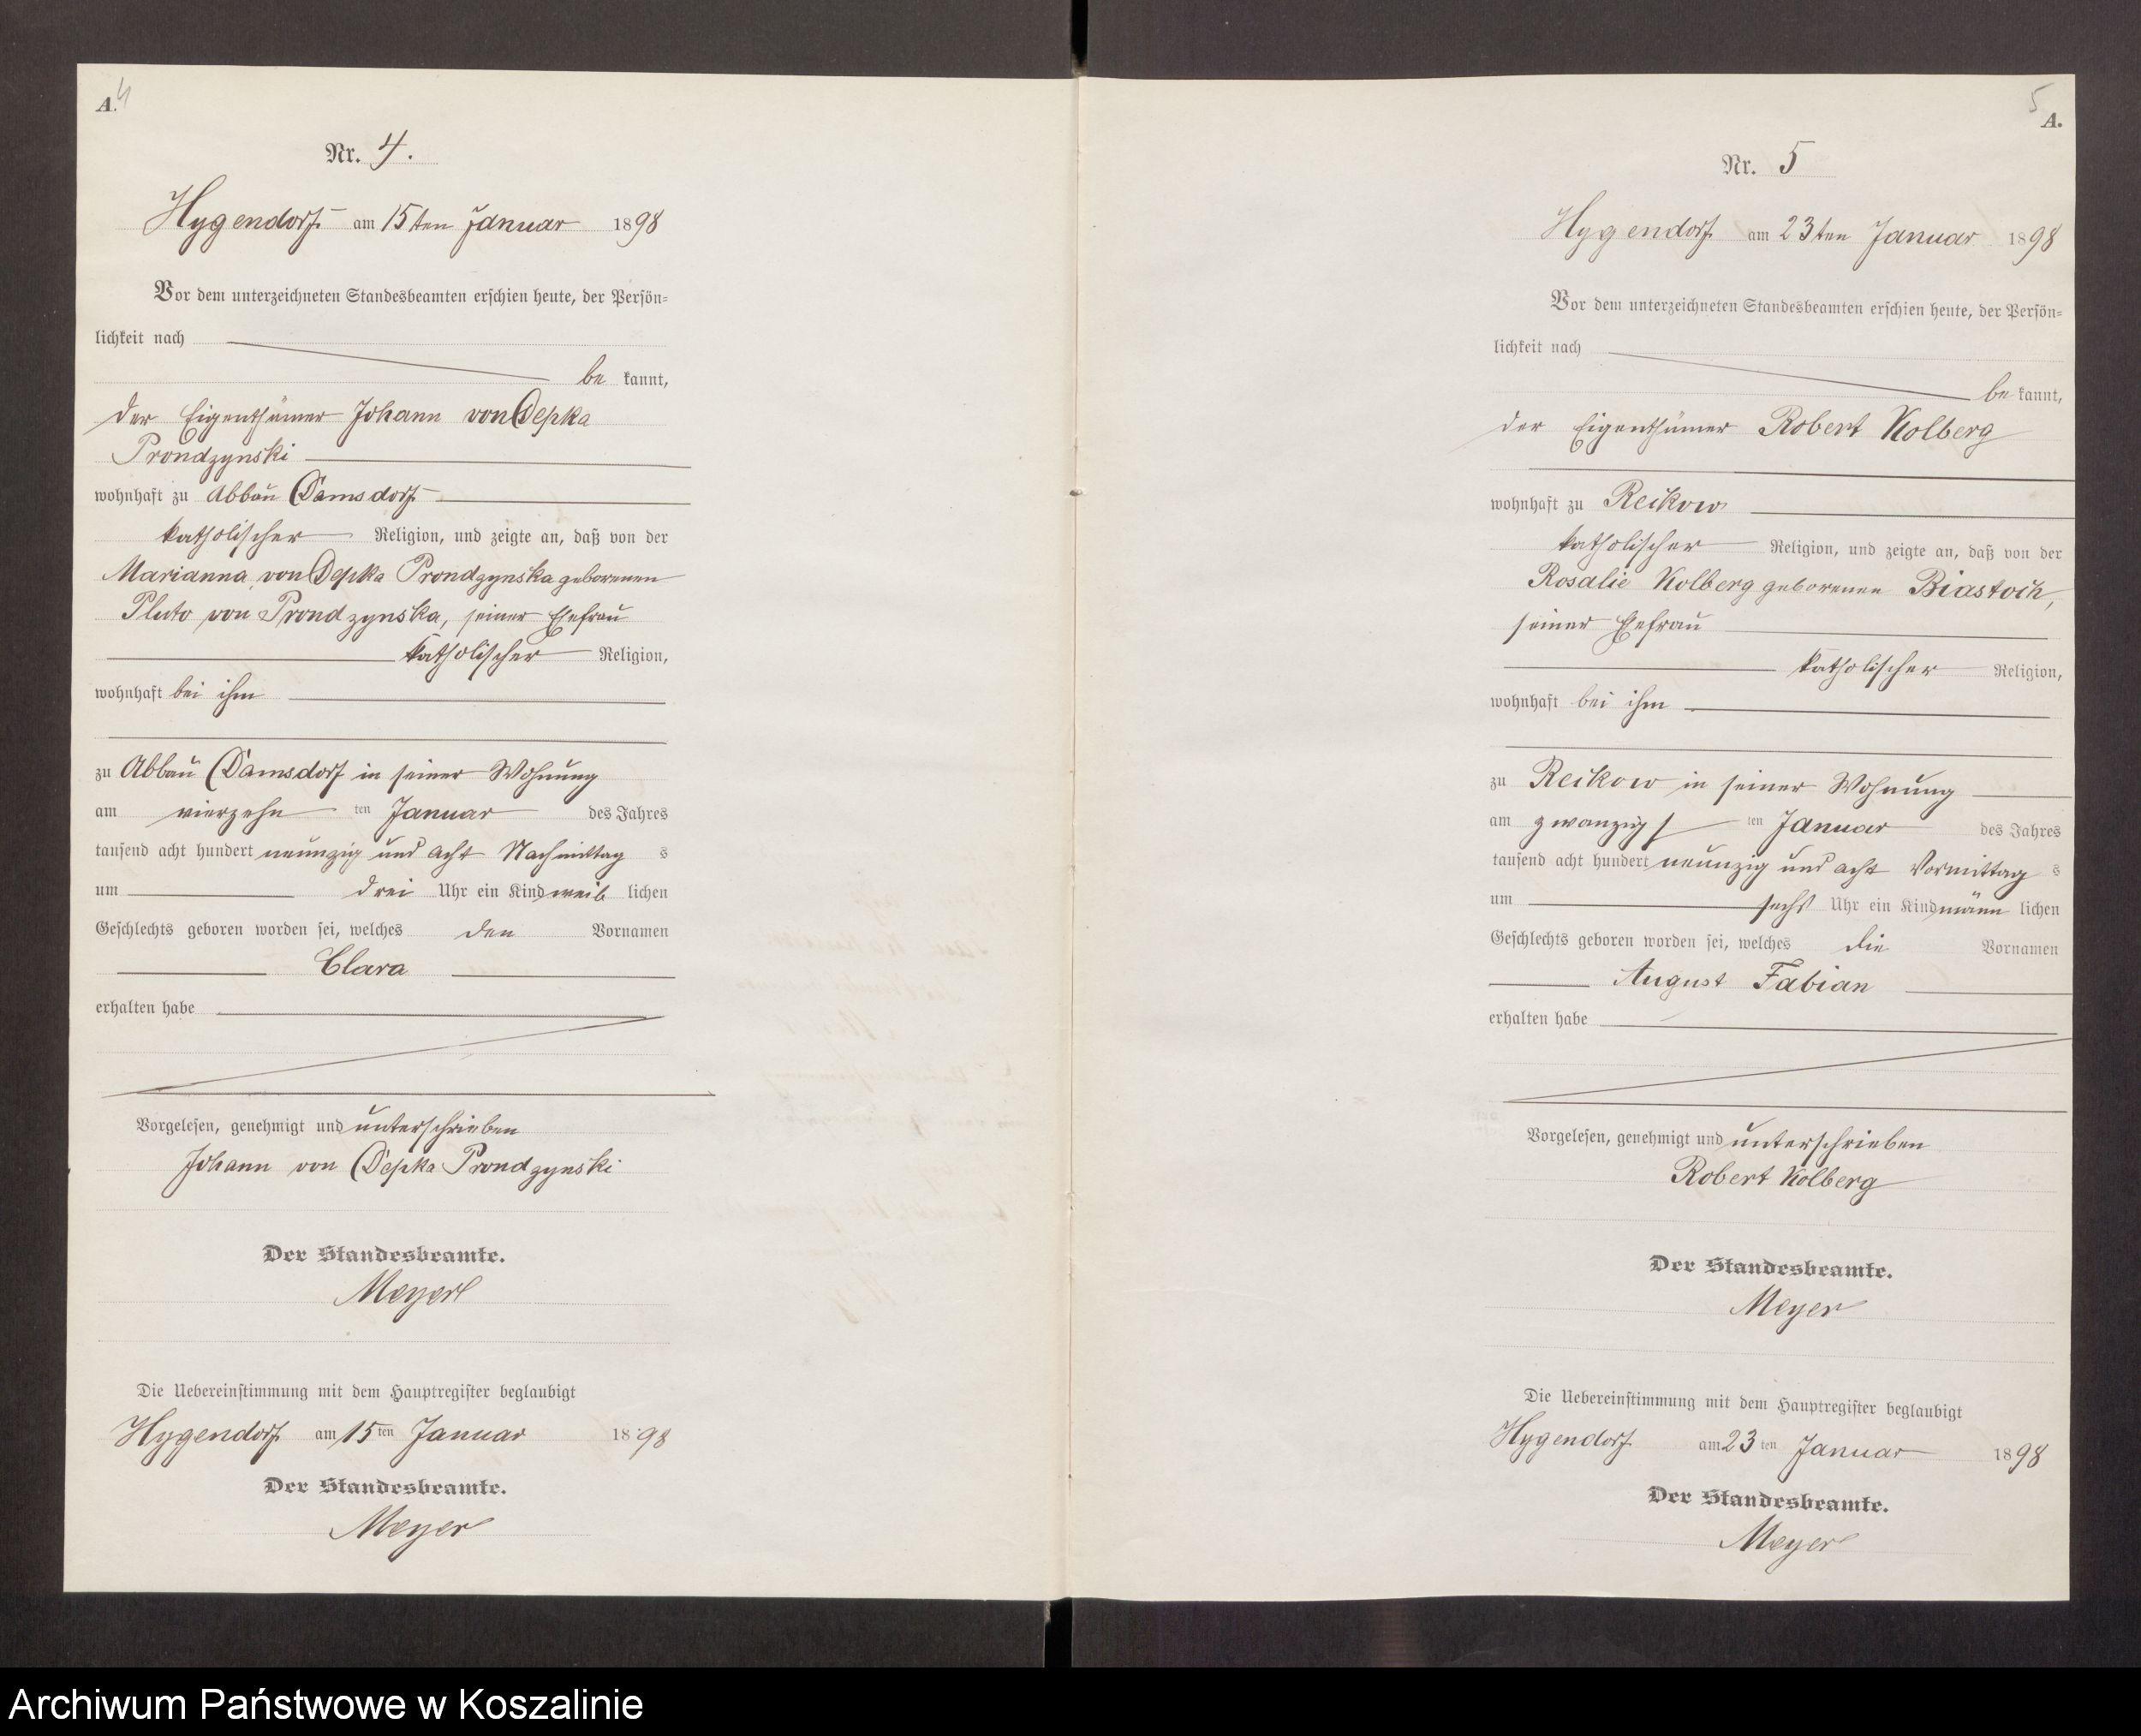 A. 4
Nr. 4.
Hygendorf am 15ten Januar 1898
Vor dem unterzeichneten Standesbeamten erschien heute, der Persön=
lichkeit nach
be kannt,
der Eigenthümer Johann von Depka
Prondzynski
wohnhaft zu Abbau Damsdorf
katholischer Religion, und zeigte an, daß von der
Marianna von Depka Prondzynska geborenen
Pluto von Prondzynska, seiner Ehefrau
katholischer Religion,
wohnhaft bei ihm
zu Abbau Damsdorf in seiner Wohnung
am vierzehn ten Januar des Jahres
tausend acht hundert neunzig und acht Nachmittag s
um drei Uhr ein Kind weib lichen
Geschlechts geboren worden sei, welches den Vornamen
Clara
erhalten habe
Vorgelesen, genehmigt und unterschrieben
Johann von Depka Prondzynski
Der Standesbeamte.
Meyer
Die Uebereinstimmung mit dem Hauptregister beglaubigt
Hygendorf am 15 ten Januar 1898
Der Standesbeamte.
Meyer
5
A.
Nr. 5
Hygendorf am 23ten Januar 1898
Vor dem unterzeichneten Standesbeamten erschien heute, der Persön=
lichkeit nach
be kannt,
der Eigenthümer Robert Kolberg
wohnhaft zu Reikow
katholischer Religion, und zeigte an, daß von der
Rosalie Kolberg geborenen Biastoch,
seiner Ehefrau
katholischer Religion,
wohnhaft bei ihm
zu Reikow in seiner Wohnung
am zwanzigs ten Januar des Jahres
tausend acht hundert neunzig und acht Vormittag s
um sechs Uhr ein Kind männ lichen
Geschlechts geboren worden sei, welches die Vornamen
August Fabian
erhalten habe
Vorgelesen, genehmigt und unterschrieben
Robert Kolberg
Der Standesbeamte.
Meyer
Die Uebereinstimmung mit dem Hauptregister beglaubigt
Hygendorf am 23 ten Januar 1898
Der Standesbeamte.
Meyer
Archiwum Państwowe w Koszalinie